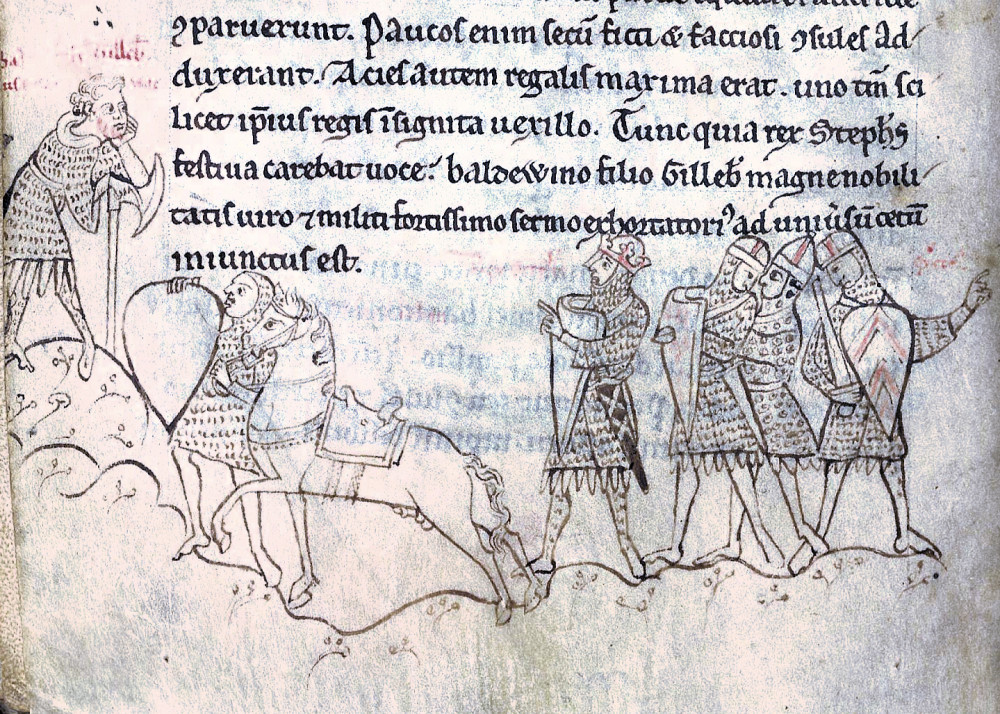 ꝯparuerunt. Paucos enim secū ficti & facciosi ꝯsules ad
duxerant. Acies autem regalis maxima erat. uno tm̄ sci
licet ip̄ius regis īsignita uexillo. Tunc quia rex Stephꝰ
festiua carebat uoce: baldewino filio Gilleb̄ magne nobili
tatis uiro ⁊ militi fortissimo sermo exhortatoriꝰ ad uniu̾sū cetū
iniunctus est.